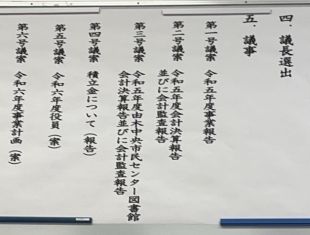 四、議長選出
五、議事
第一号議案　令和五年度事業報告
第二号議案　令和五年度会計決算報告
並びに会計監査報告
第三号議案　令和五年度由木中央市民センター図書館
会計決算報告並びに会計監査報告
第四号議案　積立金について（報告）
第五号議案　令和六年度役員（案）
第六号議案　令和六年度事業計画（案）